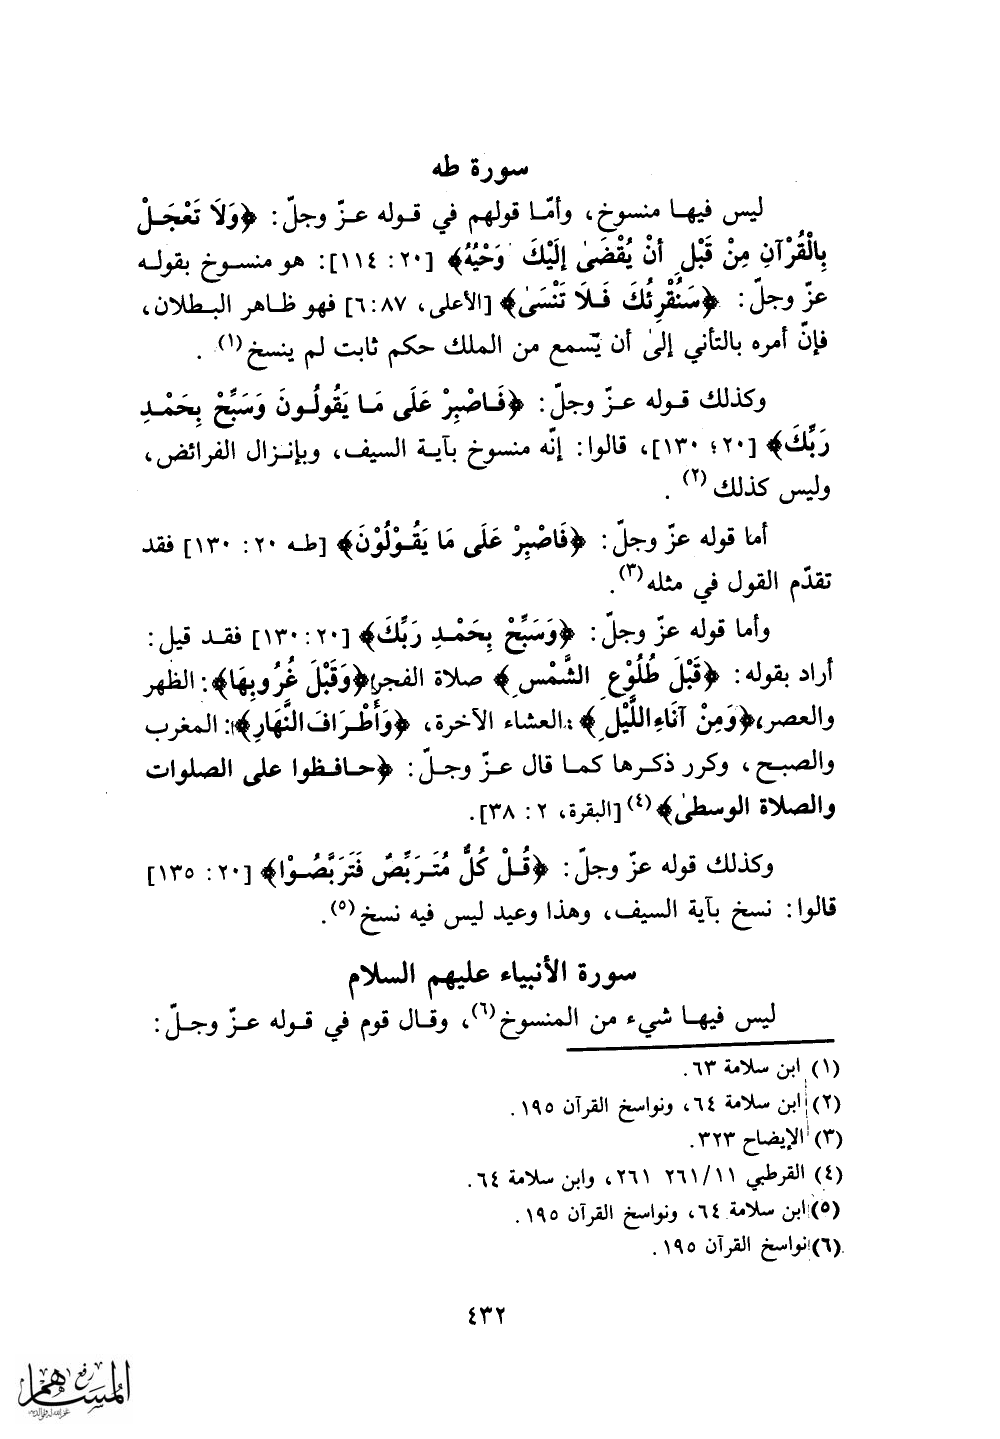 سورة طه
ليس فيها منسوخ، وأمّا قولهم في قوله عزّ وجلّ: ﴿وَلَا تَعْجَلْ
بِالْقُرْآنِ مِنْ قَبْلِ أَنْ يُقْضَىٰ إلَيْكَ وَحْيُهُ﴾ [٢٠: ١١٤]: هو منسوخ بقوله
عزّ وجلّ: ﴿سَنُقْرِئُكَ فَلَا تَنْسَىٰ﴾ [الأعلى، ٦:٨٧] فهو ظاهر البطلان،
فإنّ أمره بالتأني إلىٰ أن يّسمع من الملك حكم ثابت لم ينسخ(١).
وكذلك قوله عزّ وجلّ: ﴿فَاصْبِرْ عَلَى مَا يَقُولُونَ وَسَبِّحْ بِحَمْدِ
رَبِّكَ﴾ [٢٠؛ ١٣٠]، قالوا: إنّه منسوخ بآية السيف، وبإنزال الفرائض،
وليس كذلك(٢).
أما قوله عزّ وجلّ: ﴿فَاصْبِرْ عَلَى مَا يَقُوْلُوْنَ﴾ [طه ٢٠: ١٣٠] فقد
تقدّم القول في مثله(٣).
وأما قوله عزّ وجلّ: ﴿وَسَبِّحْ بِحَمْدِ رَبِّكَ﴾ [٢٠: ١٣٠] فقد قيل:
أراد بقوله: ﴿قَبْلَ طُلُوْعِ الشَّمْسِ﴾ صلاة الفجر ﴿وَقَبْلَ غُرُوبِهَا﴾: الظهر
والعصر، ﴿وَمِنْ آنَاءِ اللَّيْلِ﴾: العشاء الآخرة، ﴿وَأَطْرَافَ النَّهَارِ﴾: المغرب
والصبح، وكرر ذكرها كما قال عزّ وجلّ: ﴿حافظوا على الصلوات
والصلاة الوسطىٰ﴾(٤) [البقرة، ٢: ٣٨].
وكذلك قوله عزّ وجلّ: ﴿قُلْ كُلٌّ مُتَرَبِّصٌ فَتَرَبَّصُوْا﴾ [٢٠: ١٣٥]
قالوا: نسخ بآية السيف، وهذا وعيد ليس فيه نسخ(٥).
سورة الأنبياء عليهم السلام
ليس فيها شيء من المنسوخ(٦)، وقال قوم في قوله عزّ وجلّ:
(١) ابن سلامة ٦٣.
(٢) ابن سلامة ٦٤، ونواسخ القرآن ١٩٥.
(٣) الإيضاح ٣٢٣.
(٤) القرطبي ٢٦١/١١ ٢٦١، وابن سلامة ٦٤.
(٥) ابن سلامة ٦٤، ونواسخ القرآن ١٩٥.
(٦) نواسخ القرآن ١٩٥.
٤٣٢
رفع
المساهم